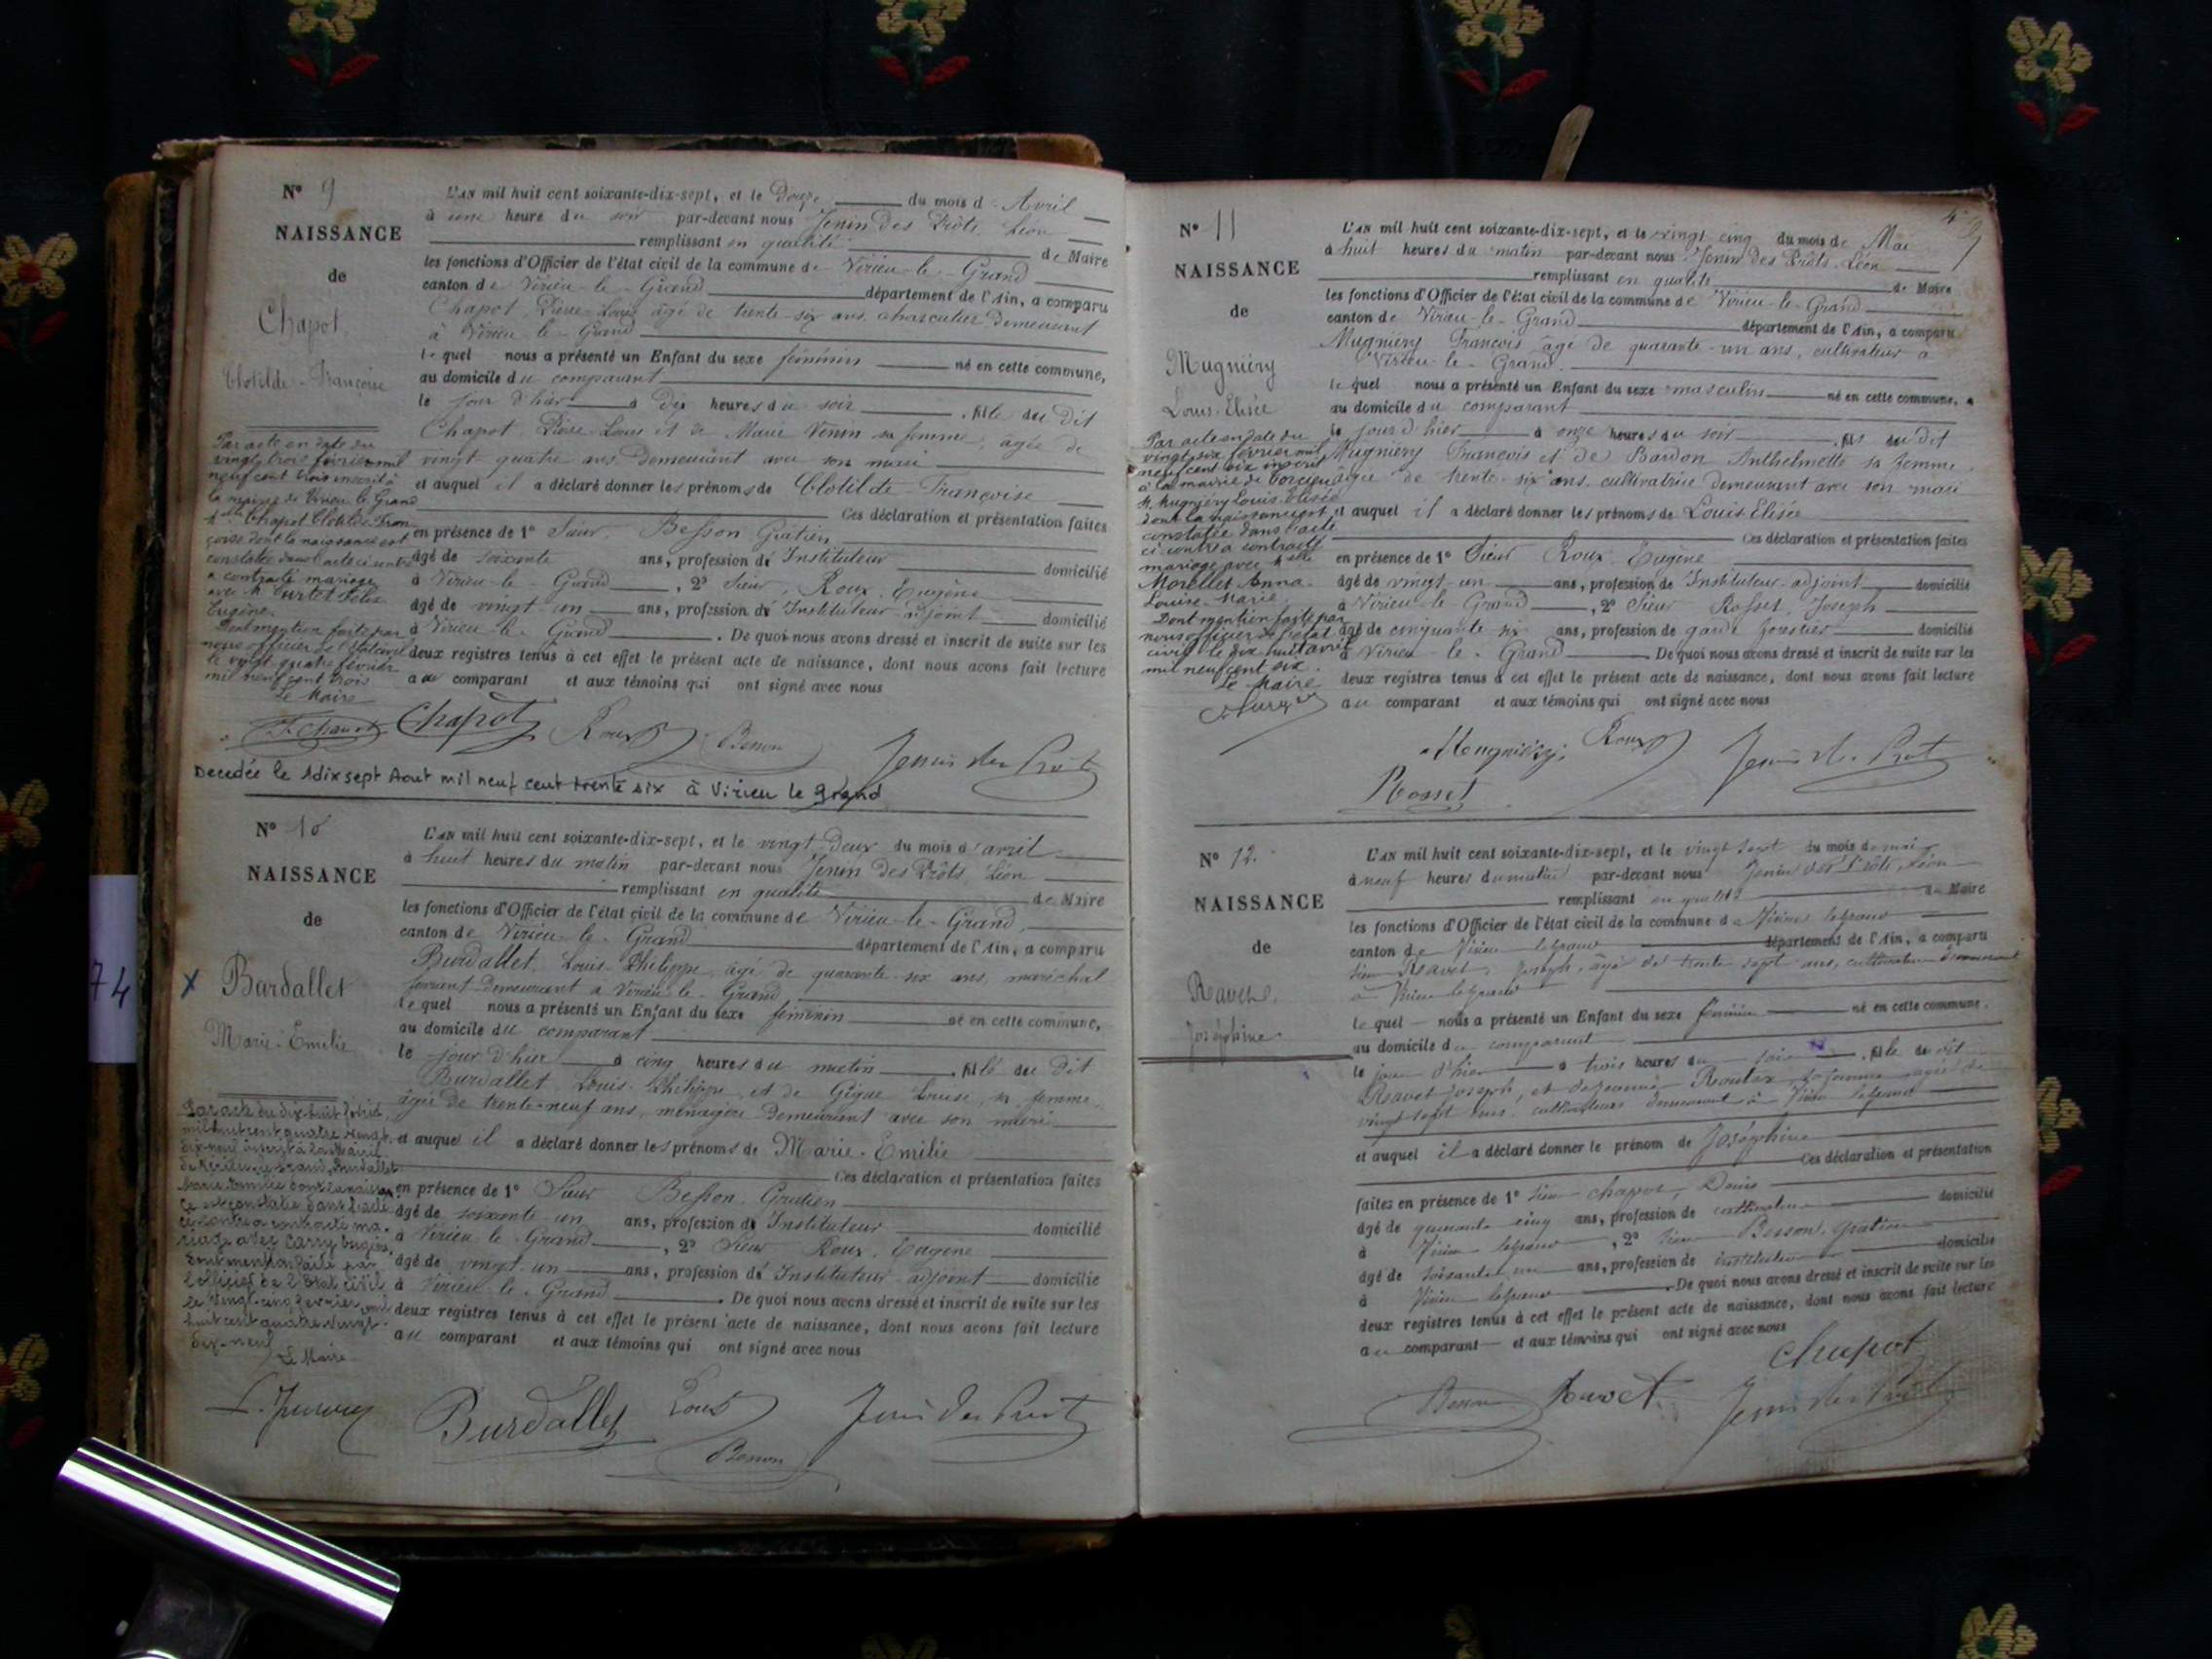 N° 9
NAISSANCE
de
Chapot
Clotilde-Françoise
L'AN mil huit cent soixante-dix-sept, et le Douze du mois d'Avril
à une heure du soir par-devant nous Jenin des Prôts, Léon
remplissant en qualité de Maire
les fonctions d'Officier de l'état civil de la commune de Virieu-le-Grand
canton de Virieu-le-Grand département de l'Ain, a comparu
Chapot, Pierre-Louis âgé de trente-six ans, charcutier demeurant
à Virieu-le-Grand
lequel nous a présenté un Enfant du sexe féminin né en cette commune,
au domicile du comparant
le jour d'hier à dix heures du soir, fille du dit
Chapot, Pierre-Louis et de Marie Venin sa femme, âgée de
vingt-quatre ans demeurant avec son mari
et auquel il a déclaré donner les prénoms de Clotilde-Françoise
Ces déclaration et présentation faites
en présence de 1° Sieur Besson Gratien
âgé de soixante ans, profession de Instituteur domicilié
à Virieu-le-Grand, 2° Sieur, Roux, Eugène
âgé de vingt un ans, profession de Instituteur-adjoint domicilié
à Virieu-le-Grand. De quoi nous avons dressé et inscrit de suite sur les
deux registres tenus à cet effet le présent acte de naissance, dont nous avons fait lecture
au comparant et aux témoins qui ont signé avec nous
Par acte en date du
vingt trois février mil
neuf cent trois inscrit à
la mairie de Virieu le Grand
Chapot Clotilde Fran
çoise dont la naissance est
constatée dans l'acte ci contre
a contracté mariage
avec M. Curtet Félix
Eugène.
Dont mention faite par
nous officier de l'état civil
le vingt quatre février
mil neuf cent trois
Le Maire
Chapot Roux Besson Jenin des Prôts
Decedée le dix sept Aout mil neuf cent trente six à Virieu le grand
N° 10
NAISSANCE
de
Burdallet
Marie-Emélie
74
L'AN mil huit cent soixante-dix-sept, et le vingt deux du mois d'avril
à huit heures du matin par-devant nous Jenin des Prôts, Léon
remplissant en qualité de Maire
les fonctions d'Officier de l'état civil de la commune de Virieu-le-Grand,
canton de Virieu-le-Grand département de l'Ain, a comparu
Burdallet, Louis-Philippe, âgé de quarante-six ans, maréchal
ferrant demeurant à Virieu-le-Grand
lequel nous a présenté un Enfant du sexe féminin né en cette commune,
au domicile du comparant
le jour d'hier à cinq heures du matin, fille du dit
Burdallet, Louis-Philippe, et de Gigue Louise, sa femme,
âgée de trente-neuf ans, ménagère demeurant avec son mari
et auquel il a déclaré donner les prénoms de Marie-Emélie
Ces déclaration et présentation faites
en présence de 1° Sieur Besson, Gratien
âgé de soixante un ans, profession de Instituteur domicilié
à Virieu-le-Grand, 2° Sieur Roux, Eugène
âgé de vingt-un ans, profession de Instituteur-adjoint domicilié
à Virieu-le-Grand. De quoi nous avons dressé et inscrit de suite sur les
deux registres tenus à cet effet le présent acte de naissance, dont nous avons fait lecture
au comparant et aux témoins qui ont signé avec nous
Par acte du dix-huit
mil huit cent quatre vingt
dix-neuf inscrit à la Mairie
de Virieu-le-Grand, Burdallet
Marie-Emélie dont la naissan
ce est constatée dans l'acte
ci contre a contracté ma-
riage avec Carry Eugène.
Dont mention faite par
l'officier de l'Etat civil
le vingt-cinq février mil
huit cent quatre vingt
dix-neuf
Le Maire
Burdallet Roux Besson Jenin des Prôts
N° 11
NAISSANCE
de
Mugniéry
Louis-Elisée
L'AN mil huit cent soixante-dix-sept, et le vingt cinq du mois de Mai
à huit heures du matin par-devant nous Jenin des Prôts, Léon
remplissant en qualité de Maire
les fonctions d'Officier de l'état civil de la commune de Virieu-le-Grand
canton de Virieu-le-Grand département de l'Ain, a comparu
Mugniéry François âgé de quarante-un ans, cultivateur à
Virieu-le-Grand.
lequel nous a présenté un Enfant du sexe masculin né en cette commune,
au domicile du comparant
le jour d'hier à onze heures du soir, fils du dit
Mugniéry François et de Bardon Anthelmette sa femme,
âgée de trente-six ans, cultivatrice demeurant avec son mari
et auquel il a déclaré donner les prénoms de Louis Elisée
Ces déclaration et présentation faites
en présence de 1° Sieur Roux Eugène
âgé de vingt-un ans, profession de Instituteur-adjoint domicilié
à Virieu-le-Grand, 2° Sieur Rosset, Joseph
âgé de cinquante six ans, profession de garde forestier domicilié
à Virieu-le-Grand. De quoi nous avons dressé et inscrit de suite sur les
deux registres tenus à cet effet le présent acte de naissance, dont nous avons fait lecture
au comparant et aux témoins qui ont signé avec nous
Par acte en date du
vingt six février mil
neuf cent six inscrit
à la mairie de Torcieu
M. Mugniéry Louis Elisée
dont la naissance est
constatée dans l'acte
ci contre a contracté
mariage avec Melle
Morellet Anna
Louise-Marie.
Dont mention faite par
nous officier de l'état
civil le dix huit avril
mil neuf cent six.
Le Maire
Mugniéry Roux Jenin des Prôts
Rosset
N° 12.
NAISSANCE
de
Ravet,
Joséphine
L'AN mil huit cent soixante-dix-sept, et le vingt sept du mois de mai
à neuf heures du matin par-devant nous Jenin des Prôts, Léon
remplissant en qualité de Maire
les fonctions d'Officier de l'état civil de la commune de Virieu legrand
canton de Virieu legrand département de l'Ain, a comparu
sieur Ravet, Joseph, âgé de trente sept ans, cultivateur demeurant
à Virieu legrand
lequel nous a présenté un Enfant du sexe féminin né en cette commune.
au domicile du comparant
le jour d'hier à trois heures du soir, fille du dit
Ravet Joseph, et de Jeanne sa femme âgée de
vingt sept ans, cultivateurs demeurant à Virieu legrand
et auquel il a déclaré donner le prénom de Joséphine
Ces déclaration et présentation
faites en présence de 1° sieur chapot, Denis
âgé de quarante cinq ans, profession de cultivateur domicilié
à Virieu legrand, 2° sieur Besson, gratien
âgé de soixante un ans, profession de instituteur domicilié
à Virieu legrand. De quoi nous avons dressé et inscrit de suite sur les
deux registres tenus à cet effet le présent acte de naissance, dont nous avons fait lecture
au comparant et aux témoins qui ont signé avec nous
chapot
Besson Ravet Jenin des Prôts